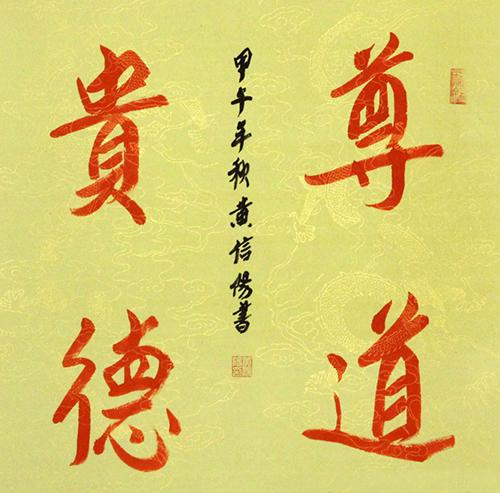 尊道
貴德
甲午年秋黄信陽書